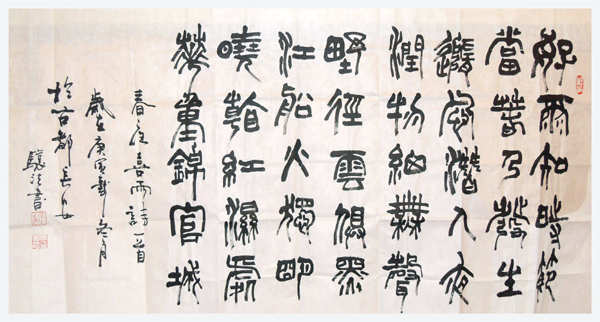 好雨知時節
當春乃發生
隨風潛入夜
潤物細無聲
野徑雲俱黑
江船火獨明
曉看紅濕處
華重錦官城
春夜喜雨詩一首
歲在庚寅冬月
於古都長安
書